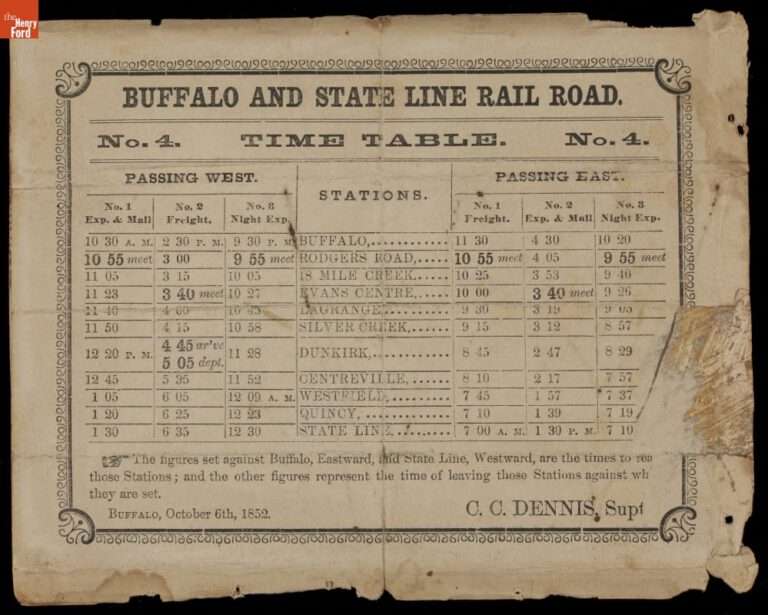 the
Henry
Ford
BUFFALO AND STATE LINE RAIL ROAD.
No. 4. TIME TABLE. No. 4.
PASSING WEST. STATIONS. PASSING EAST.
No. 1 No. 2 No. 3 No. 1 No. 2 No. 3
Exp. & Mail Freight. Night Exp. Freight. Exp. & Mail Night Exp.
10 30 A. M. 2 30 P. M. 9 30 P. M BUFFALO,............ 11 30 4 30 10 20
10 55 meet 3 00 9 55 meet RODGERS ROAD,..... 10 55 meet 4 05 9 55 meet
11 05 3 15 10 05 18 MILE CREEK...... 10 25 3 53 9 40
11 23 3 40 meet 10 27 EVANS CENTRE,..... 10 00 3 40 meet 9 26
11 40 4 00 10 45 LAGRANGE,......... 9 30 3 19 9 05
11 50 4 15 10 58 SILVER CREEK,..... 9 15 3 12 8 57
12 20 P. M. 4 45 ar've 5 05 dept. 11 28 DUNKIRK,............ 8 45 2 47 8 29
12 45 5 35 11 52 CENTREVILLE, ...... 8 10 2 17 7 57
1 05 6 05 12 09 A. M. WESTFIELD,......... 7 45 1 57 7 37
1 20 6 25 12 23 QUINCY, ............ 7 10 1 39 7 19
1 30 6 35 12 30 STATE LINE,......... 7 00 A. M. 1 30 P. M. 7 10
☞ The figures set against Buffalo, Eastward, and State Line, Westward, are the times to rea
those Stations; and the other figures represent the time of leaving those Stations against wh
they are set.
BUFFALO, October 6th, 1852. C. C. DENNIS, Supt